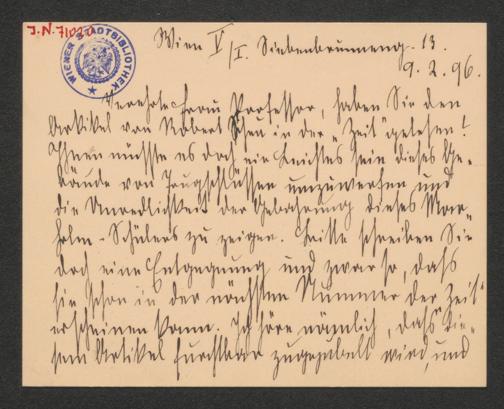 J.N. 71020
WIENER STADTBIBLIOTHEK
Wien V/I. Siebenbrunneng. 13.
9. 2. 96.
Verehrte Frau Professor, haben Sie den
Artikel von Robert Scheu in der „Zeit“ gelesen?
Ihnen müsste es doch ein Leichtes sein dieses Ge-
bäude von Trugschlüssen umzuwerfen und
die Unredlichkeit der Gebahrung dieses Mar-
holm-Schülers zu zeigen. Bitte schreiben Sie
doch eine Entgegnung und zwar so, dass
sie schon in der nächsten Nummer der Zeit
erscheinen kann. Ich höre nämlich, dass die-
sem Artikel furchtbar zugejubelt wird, und